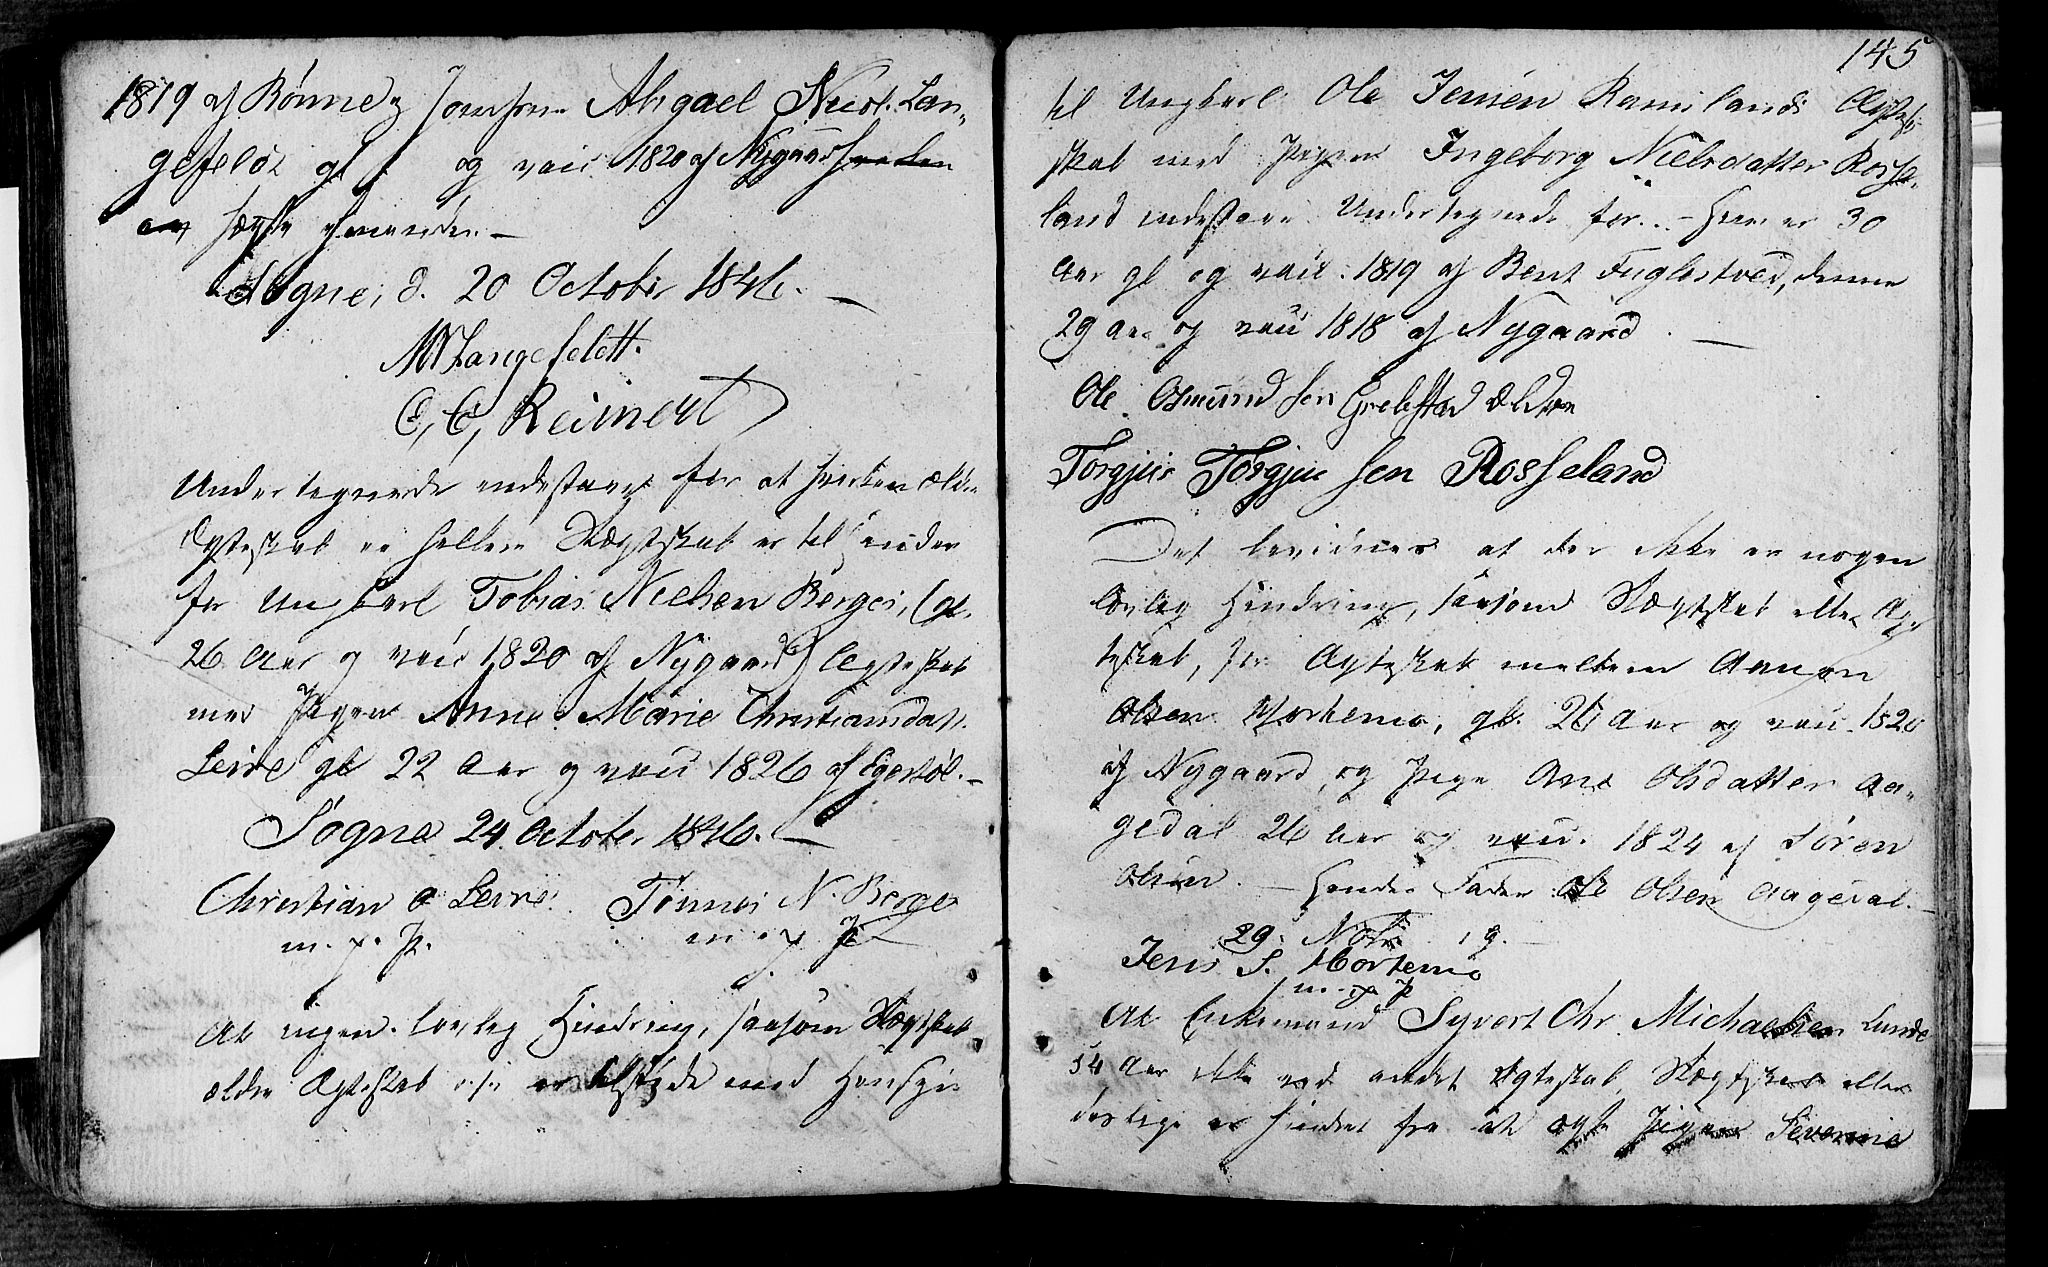 1819 af Rønne, Jomfrue Abigael Nicol. Lan-
gefeldt gl og vac 1820 af Nygaard
ægte hinanden. —
Søgne, d. 20 October 1846. —
Langefeldt.
C, C, Reinert
Undertegnede indestaae for at hverken ældre
Ægteskab ei heller Slægtskab er til Hinder
for Ungkarl Tobias Nielsen Berge, (gl.
26 Aar og vac 1820 af Nygaard) Ægteskab
med Pigen Anne Marie Christiansdatt.
Leire gl 22 Aar og vac 1826 af Egestøl. —
Søgne 24. October 1846. —
Christian O Leire. Tønnes N. Berge
m. p. P. m. p. P
At ingen lovlig Hindring, saasom Slægtskab
ældre Ægteskab er tilstæde med Hensyn
145
til Ungkarl Ole Jensen Ramslands Ægte-
skab med Pigen Ingeborg Nielsdatter Rosse-
land indestaae Undertegnede for. — Hun er 30
Aar gl og vac. 1819 af Bent Fuglestved, denne
29 Aar og vac 1818 af Nygaard. —
Ole Osmundsen Grebstad Ældere
Torgjus Torgjusen Rosseland
Det bevidnes at der ikke er nogen
lovlig Hindring, saasom Slægtskab eller Æg-
teskab, for Ægteskab mellem Aanon
Olsen Hortemo, gl. 26 Aar og vac. 1820
af Nygaard, og Pige Ane Olsdatter Aa-
gedal 26 Aar og vac. 1824 af Søren
Olsen. — Hendes Fader Ole Olsen Aagedal. —
29. Nobr.
Jens S. Hortemo
m. p. P
At Enkemand Syvert Chr. Michaelsen Lunde
54 Aar ikke ved andet Ægteskab, Slægtskab eller
deslige er hindret fra at ægte Pigen Severine